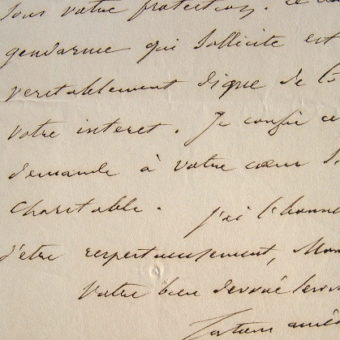 sous votre protection. Ce
gendarme qui sollicite est
veritablement digne de
votre interet. Je confie ce
demande à votre cœur
charitable. J'ai l'honne
d'etre respectueusement, Mon
Votre bien devoué servi